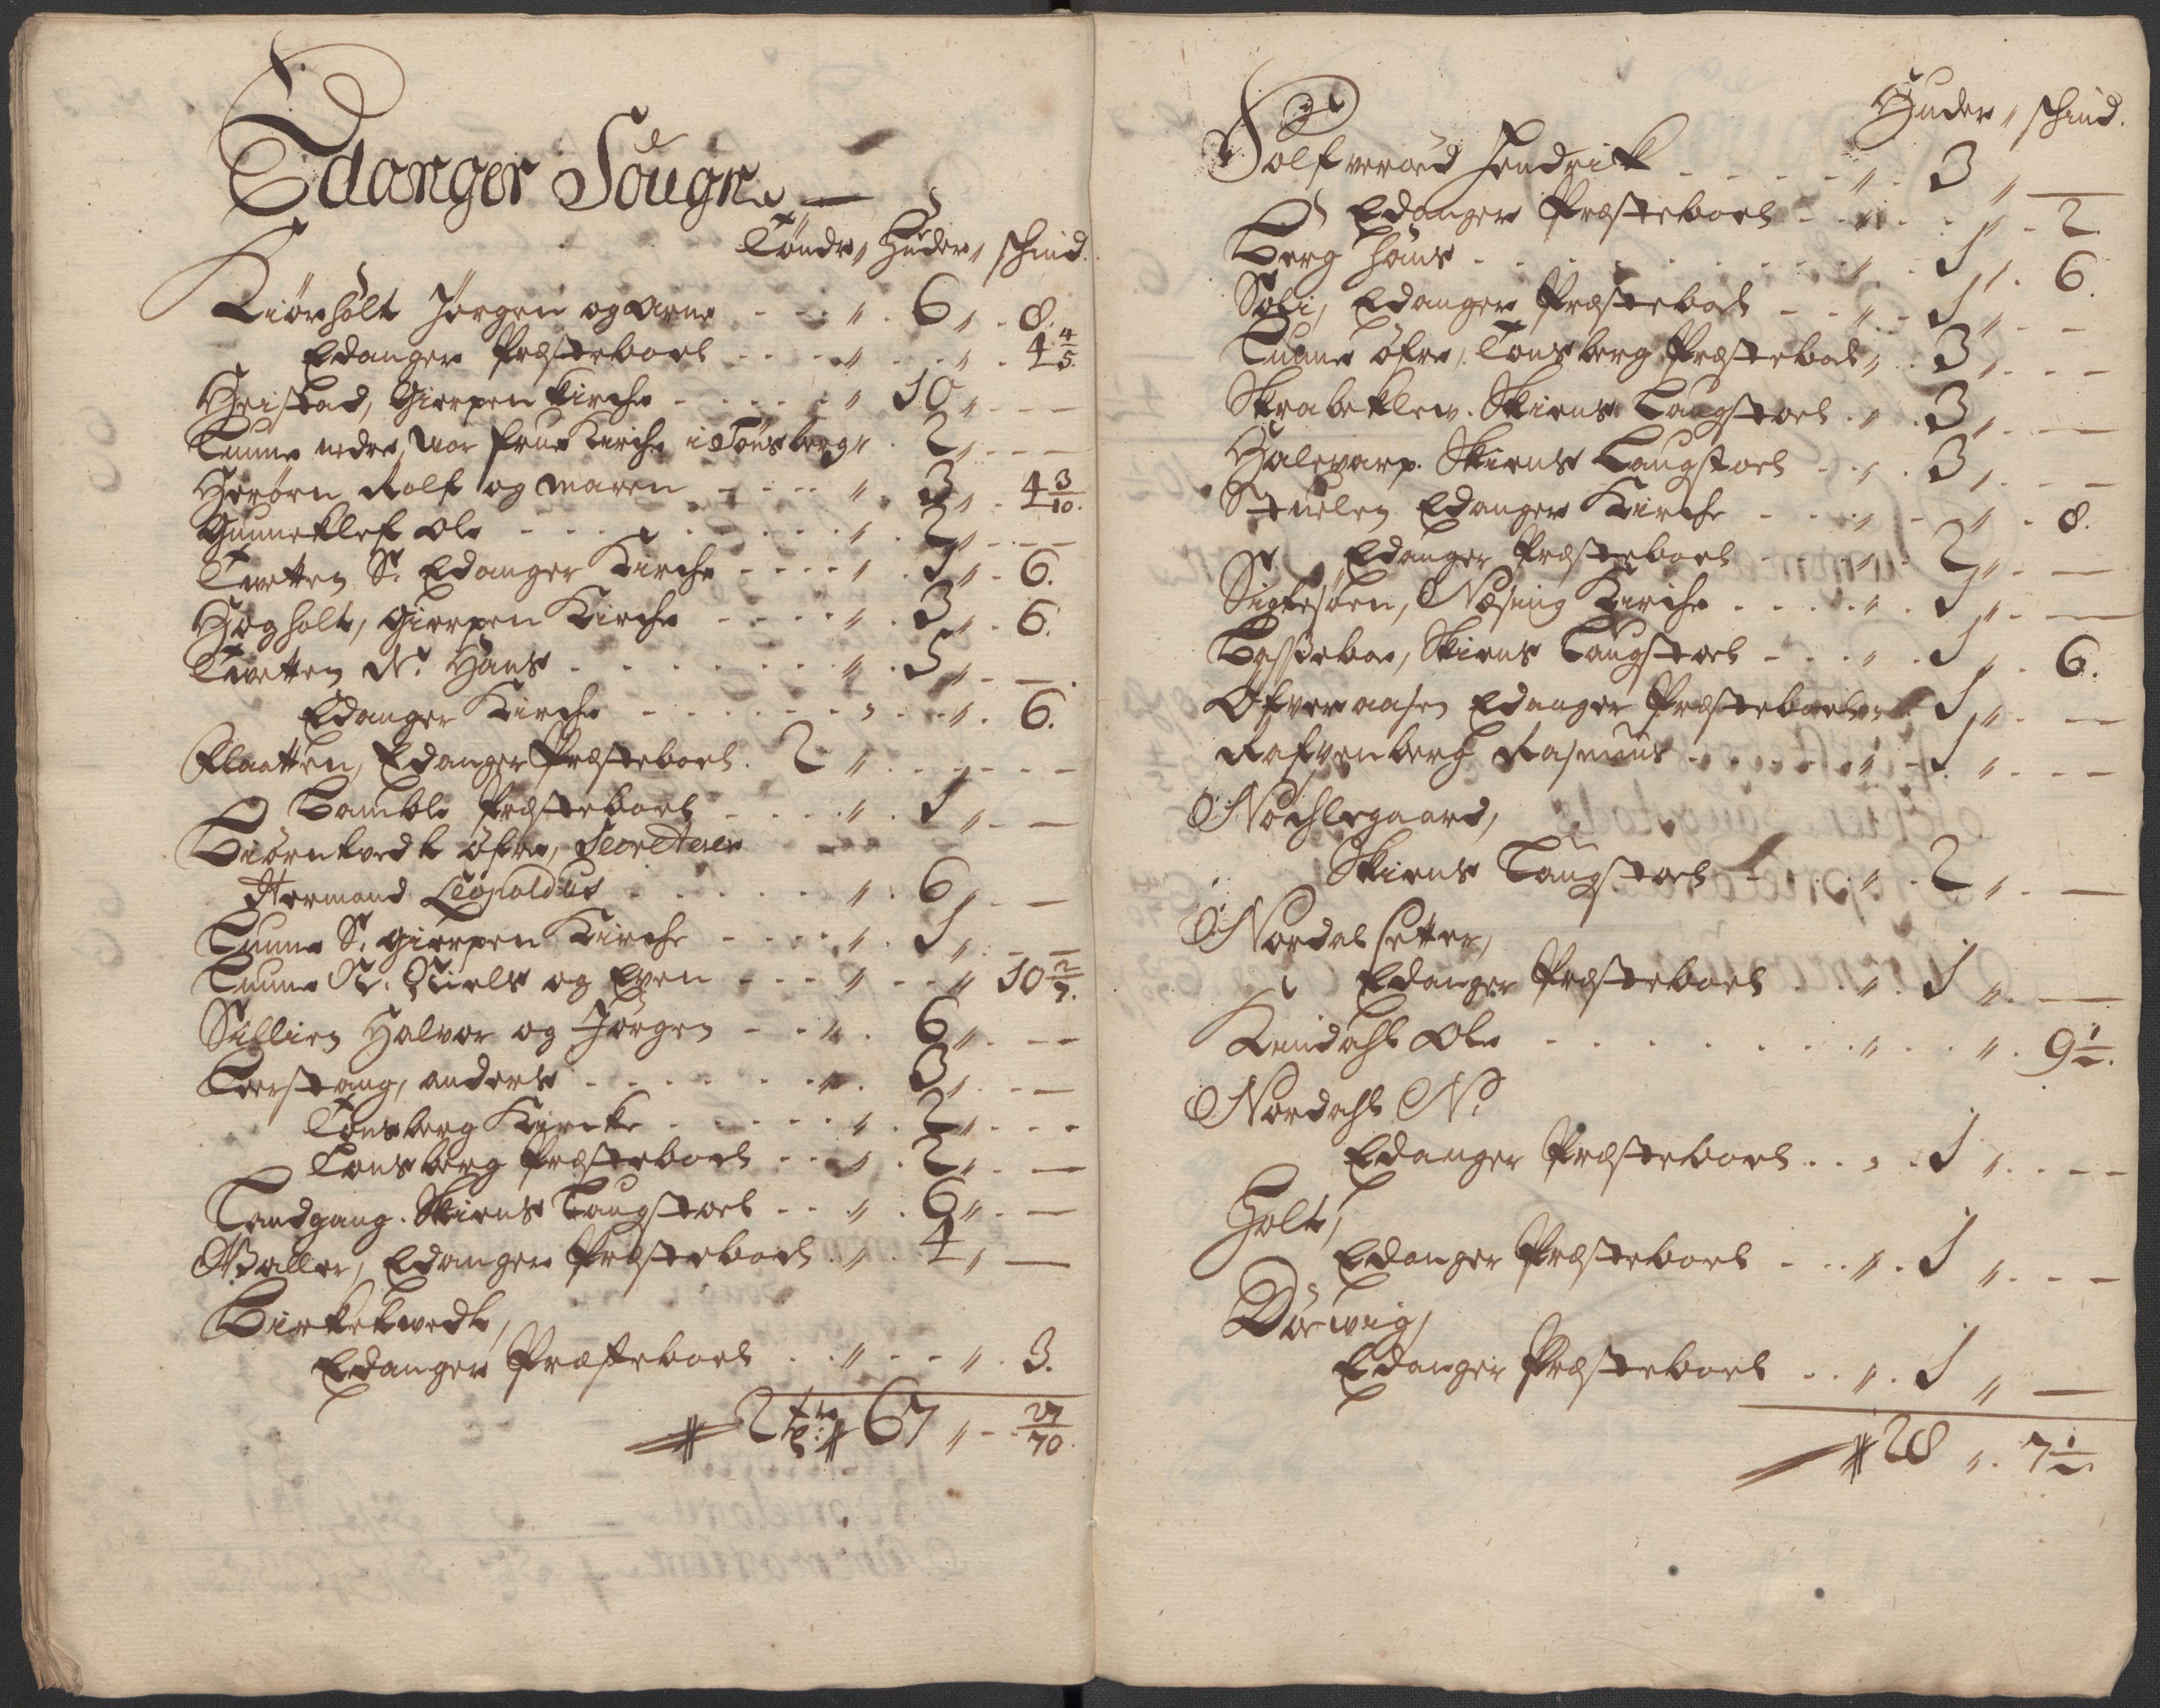 Edanger Sougn
Tönde, Huder, schind.
Kiørholt Jørgen og Arne - - - " . 6 " . 8.
Edanger Præsteboel - - - - " - - - " . 4 4/5.
Heistad, Gierpen Kirche - - - - - " 10 " - - -
Tuune nedre, Vor frue Kirche i Tønsberg " . 2 " - - -
Herøen Rolf og Maren - - - - " . 3 " . 4 3/10.
Gunneklef Ole - - - - - - - - " . 2 " - - -
Tvetten S. Edanger Kirche - - - - " . 1 " - 6.
Hogholt, Gierpen Kirche - - - - " . 3 " . 6.
Tvetten N. Hans - - - - - - - - " . 5 " - - -
Edanger Kirche - - - - - - - " - - - " . 6.
Flaatten, Edanger Præsteboel . 2 " - - - - - -
Bamble Præsteboel - - - - - " . 1 " - - -
Biørntvedt øfre, Secreterer
Hermand Leopoldus - - - - - - " . 6 " - - -
Tuune S. Gierpen Kirche - - - - " . 1 " - - -
Tuune N. Niels og Even - - - " - - - " 10 2/7.
Sillien Halvor og Jørgen - - " . 6 " - - -
Versvang, anders - - - - - - " . 3 " - - -
Tønsberg Kircke - - - - - " . 2 " - - -
Tønsberg Præsteboel - - - " . 2 " - - -
Sandgang. Skiens Laugstoel - - " . 6 " - - -
Valler, Edanger Præsteboel . " . 4 " - -
Birketvedt,
Edanger Præsteboel . . " - - - " . 3.
2 tø: 67 " - 27/70.
Huder " schind.
Solfveroed Hendrik - - - - - " . 3 " -
Edanger Præsteboel - - " - - - " . 2.
Berg Hans - - - - - - - - " . 1 " . 6.
Soli, Edanger Præsteboel - - " . 1 " - -
Tuune øfre, Tønsberg Præsteboel " . 3 " - - -
Skrabeklev. Skiens Laugstoel . " . 3 " - - -
Halevarp. Skiens Laugstoel - . " . 3 " - - -
Stuelen Edanger Kirche - - - " - - " . 8.
Edanger Præsteboel - - - " . 2 " - -
Sigtesøen, Næsing Kirche - - - - " . 1 " - -
Bassebo, Skiens Laugstoel - - - " . 1 " . 6.
Ofveraasen Edanger Præsteboel " . 1 " - -
Rafvenberg Rasmus - - - - - - " . 1 " - - -
Nøchlegaard,
Skiens Laugstoel - - - " . 2 " - -
Nordal setter,
Edanger Præsteboel - - - " . 1 " - -
Kindahl Ole - - - - - - - - " . . " . 9 1/2.
Nordahl N:
Edanger Præsteboel . . " . 1 " - - -
Holt,
Edanger Præsteboel - . . " . 1 " - - -
Dørvig,
Edanger Præsteboel . . " . 1 " -
28 " . 7 1/2